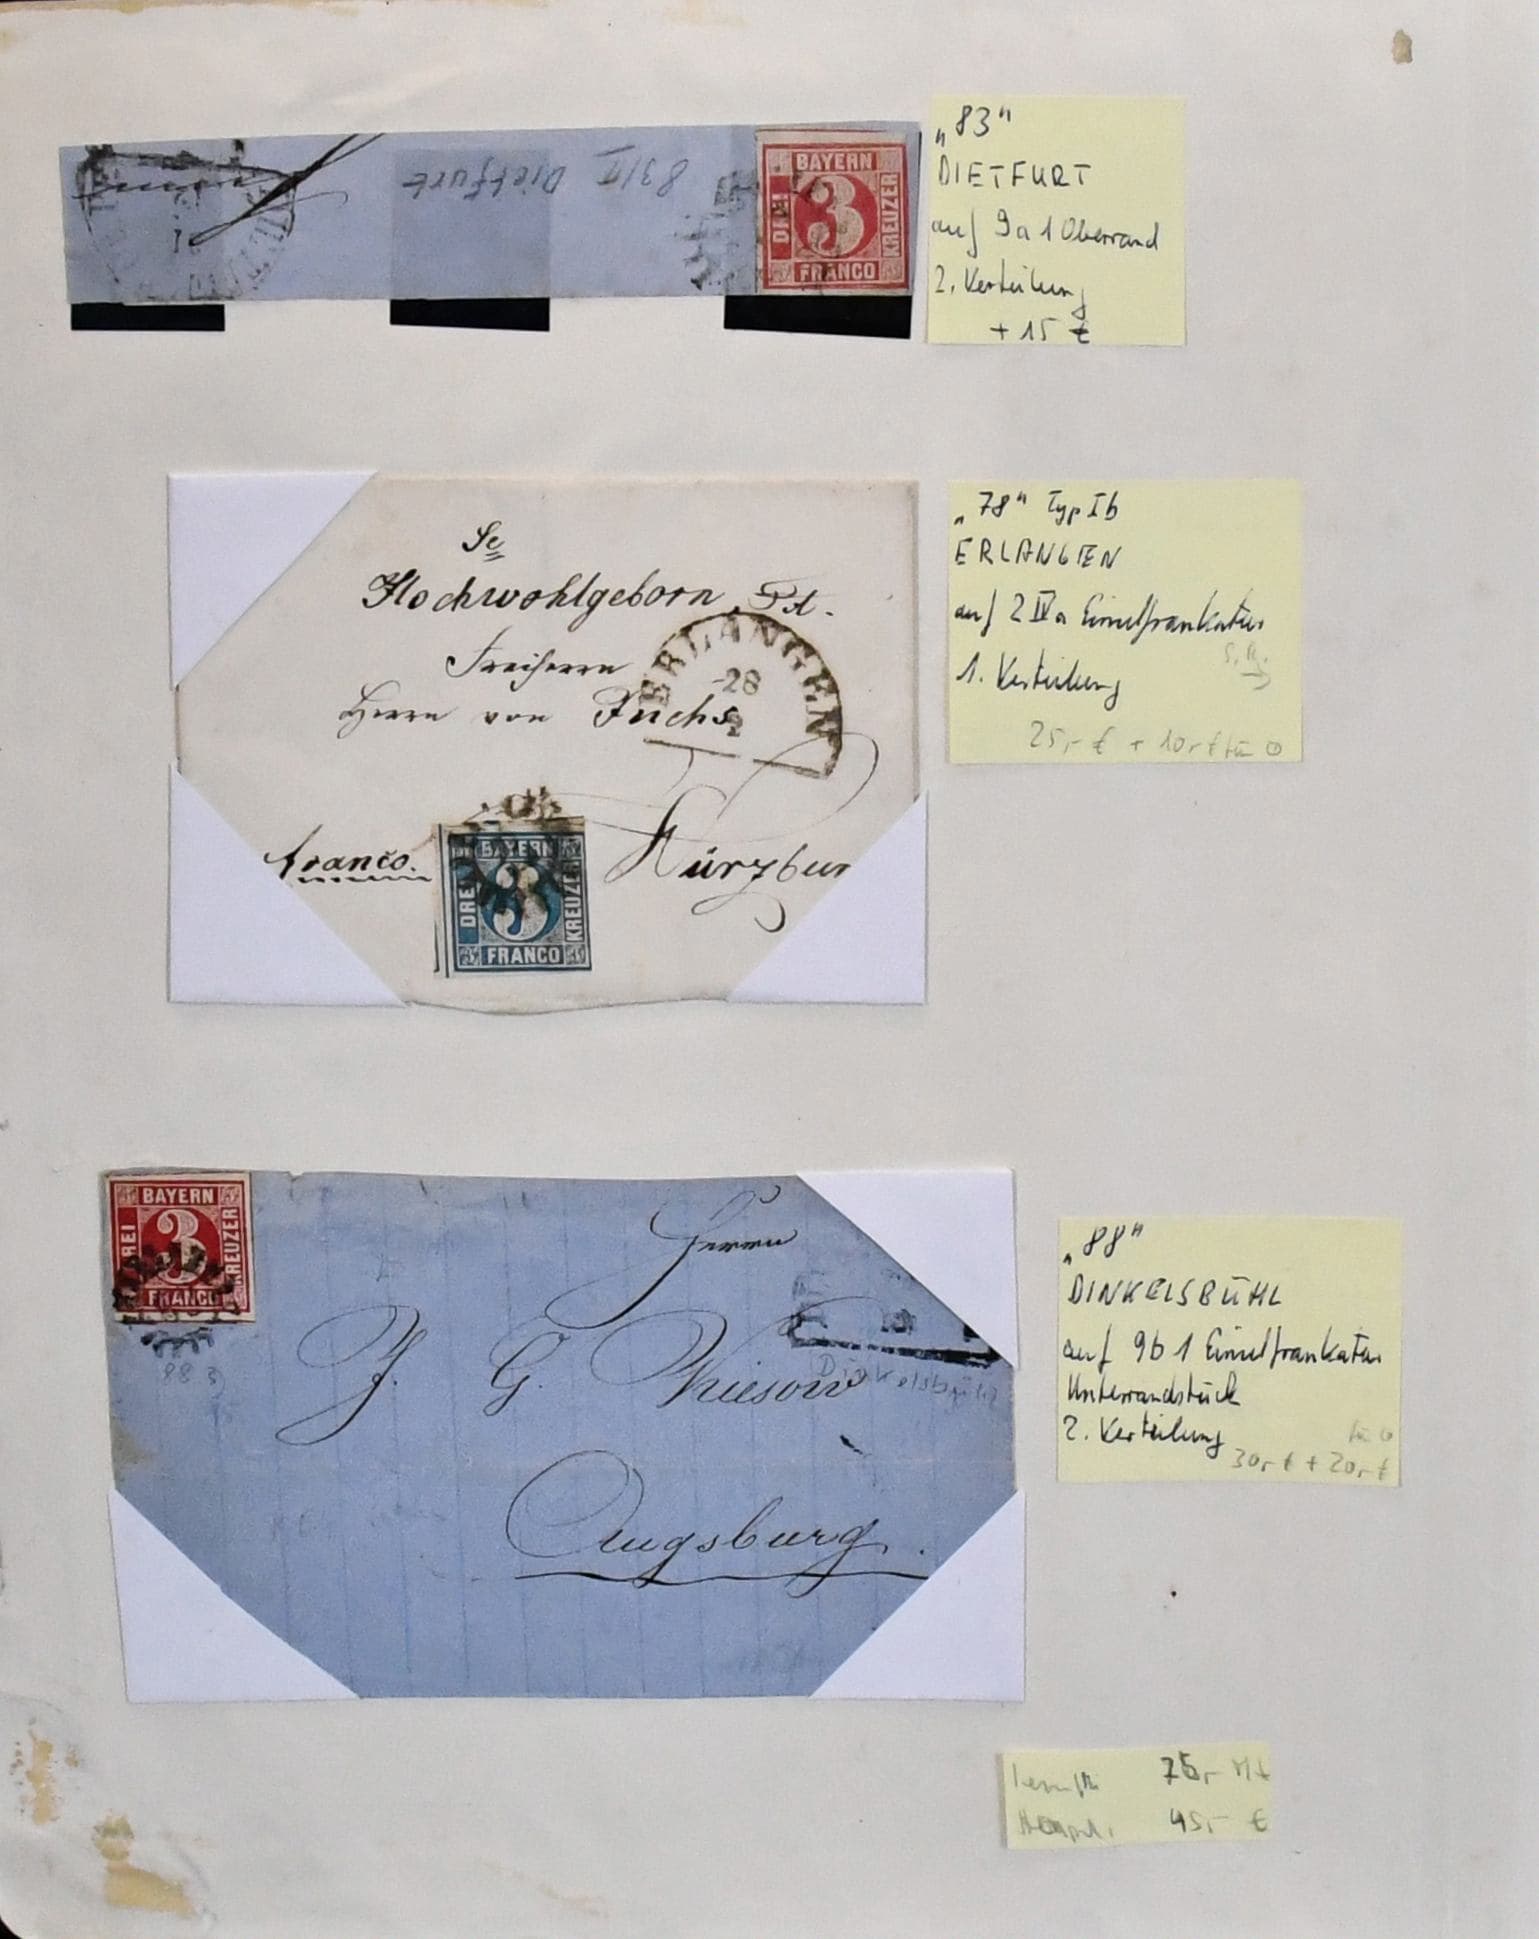 83/II Dietfurt
BAYERN
DREI
3
KREUZER
FRANCO
„83“
DIETFURT
auf 9a1 Oberrand
2. Verteilung
+ 15 €
Se
Hochwohlgeborn
Freiherrn
Herrn von Fuchs
franco.
Würzbur
ERLANGEN
28
2
BAYERN
DREI
3
KREUZER
FRANCO
„78“ Typ Ib
ERLANGEN
auf 2IVa Einzelfrankatur
1. Verteilung
25,- € + 10,- € für
BAYERN
DREI
3
KREUZER
FRANCO
Herrn
J. G.
Augsburg.
88
Dinkelsbühl
„88“
DINKELSBÜHL
auf 9b1 Einzelfrankatur
Unterrandstück
2. Verteilung
30,- € + 20,- €
75,-
45,- €